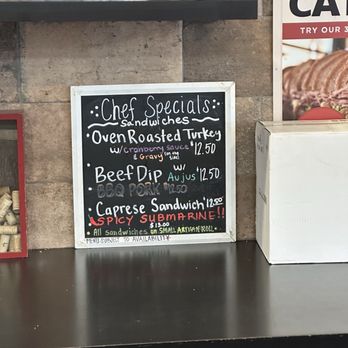 CA
TRY OUR 3
Chef Specials
sandwiches
Oven Roasted Turkey
w/ cranberry sauce $12.50
& Gravy (on the side)
Beef Dip w/ Aujus $12.50
BBQ PORK $12.50
Caprese Sandwich $12.50
SPICY SUBMARINE!!
$13.00
All sandwiches on SMALL ARTISAN ROLL
MENU SUBJECT TO AVAILABILITY